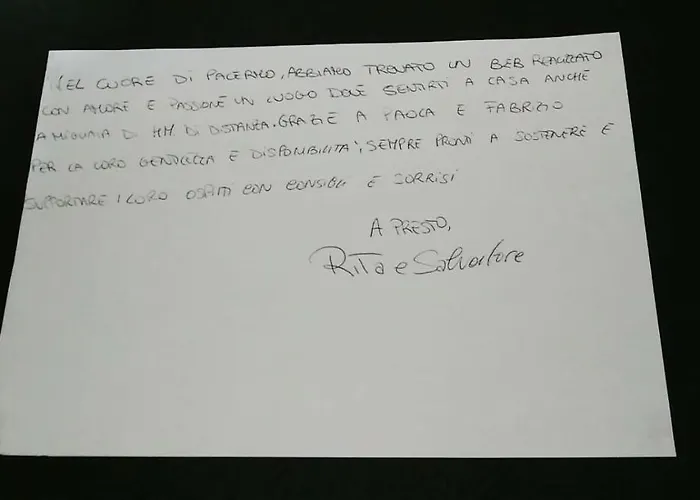 NEL CUORE DI PALERMO, ABBIAMO TROVATO UN B&B REALIZZATO
CON AMORE E PASSIONE UN LUOGO DOVE SENTIRTI A CASA ANCHE
A MIGLIAIA DI KM DI DISTANZA. GRAZIE A PAOLA E FABRIZIO
PER LA LORO GENTILEZZA E DISPONIBILITA', SEMPRE PRONTI A SOSTENERE E
SUPPORTARE I LORO OSPITI CON CONSIGLI E SORRISI
A PRESTO,
Rita e Salvatore